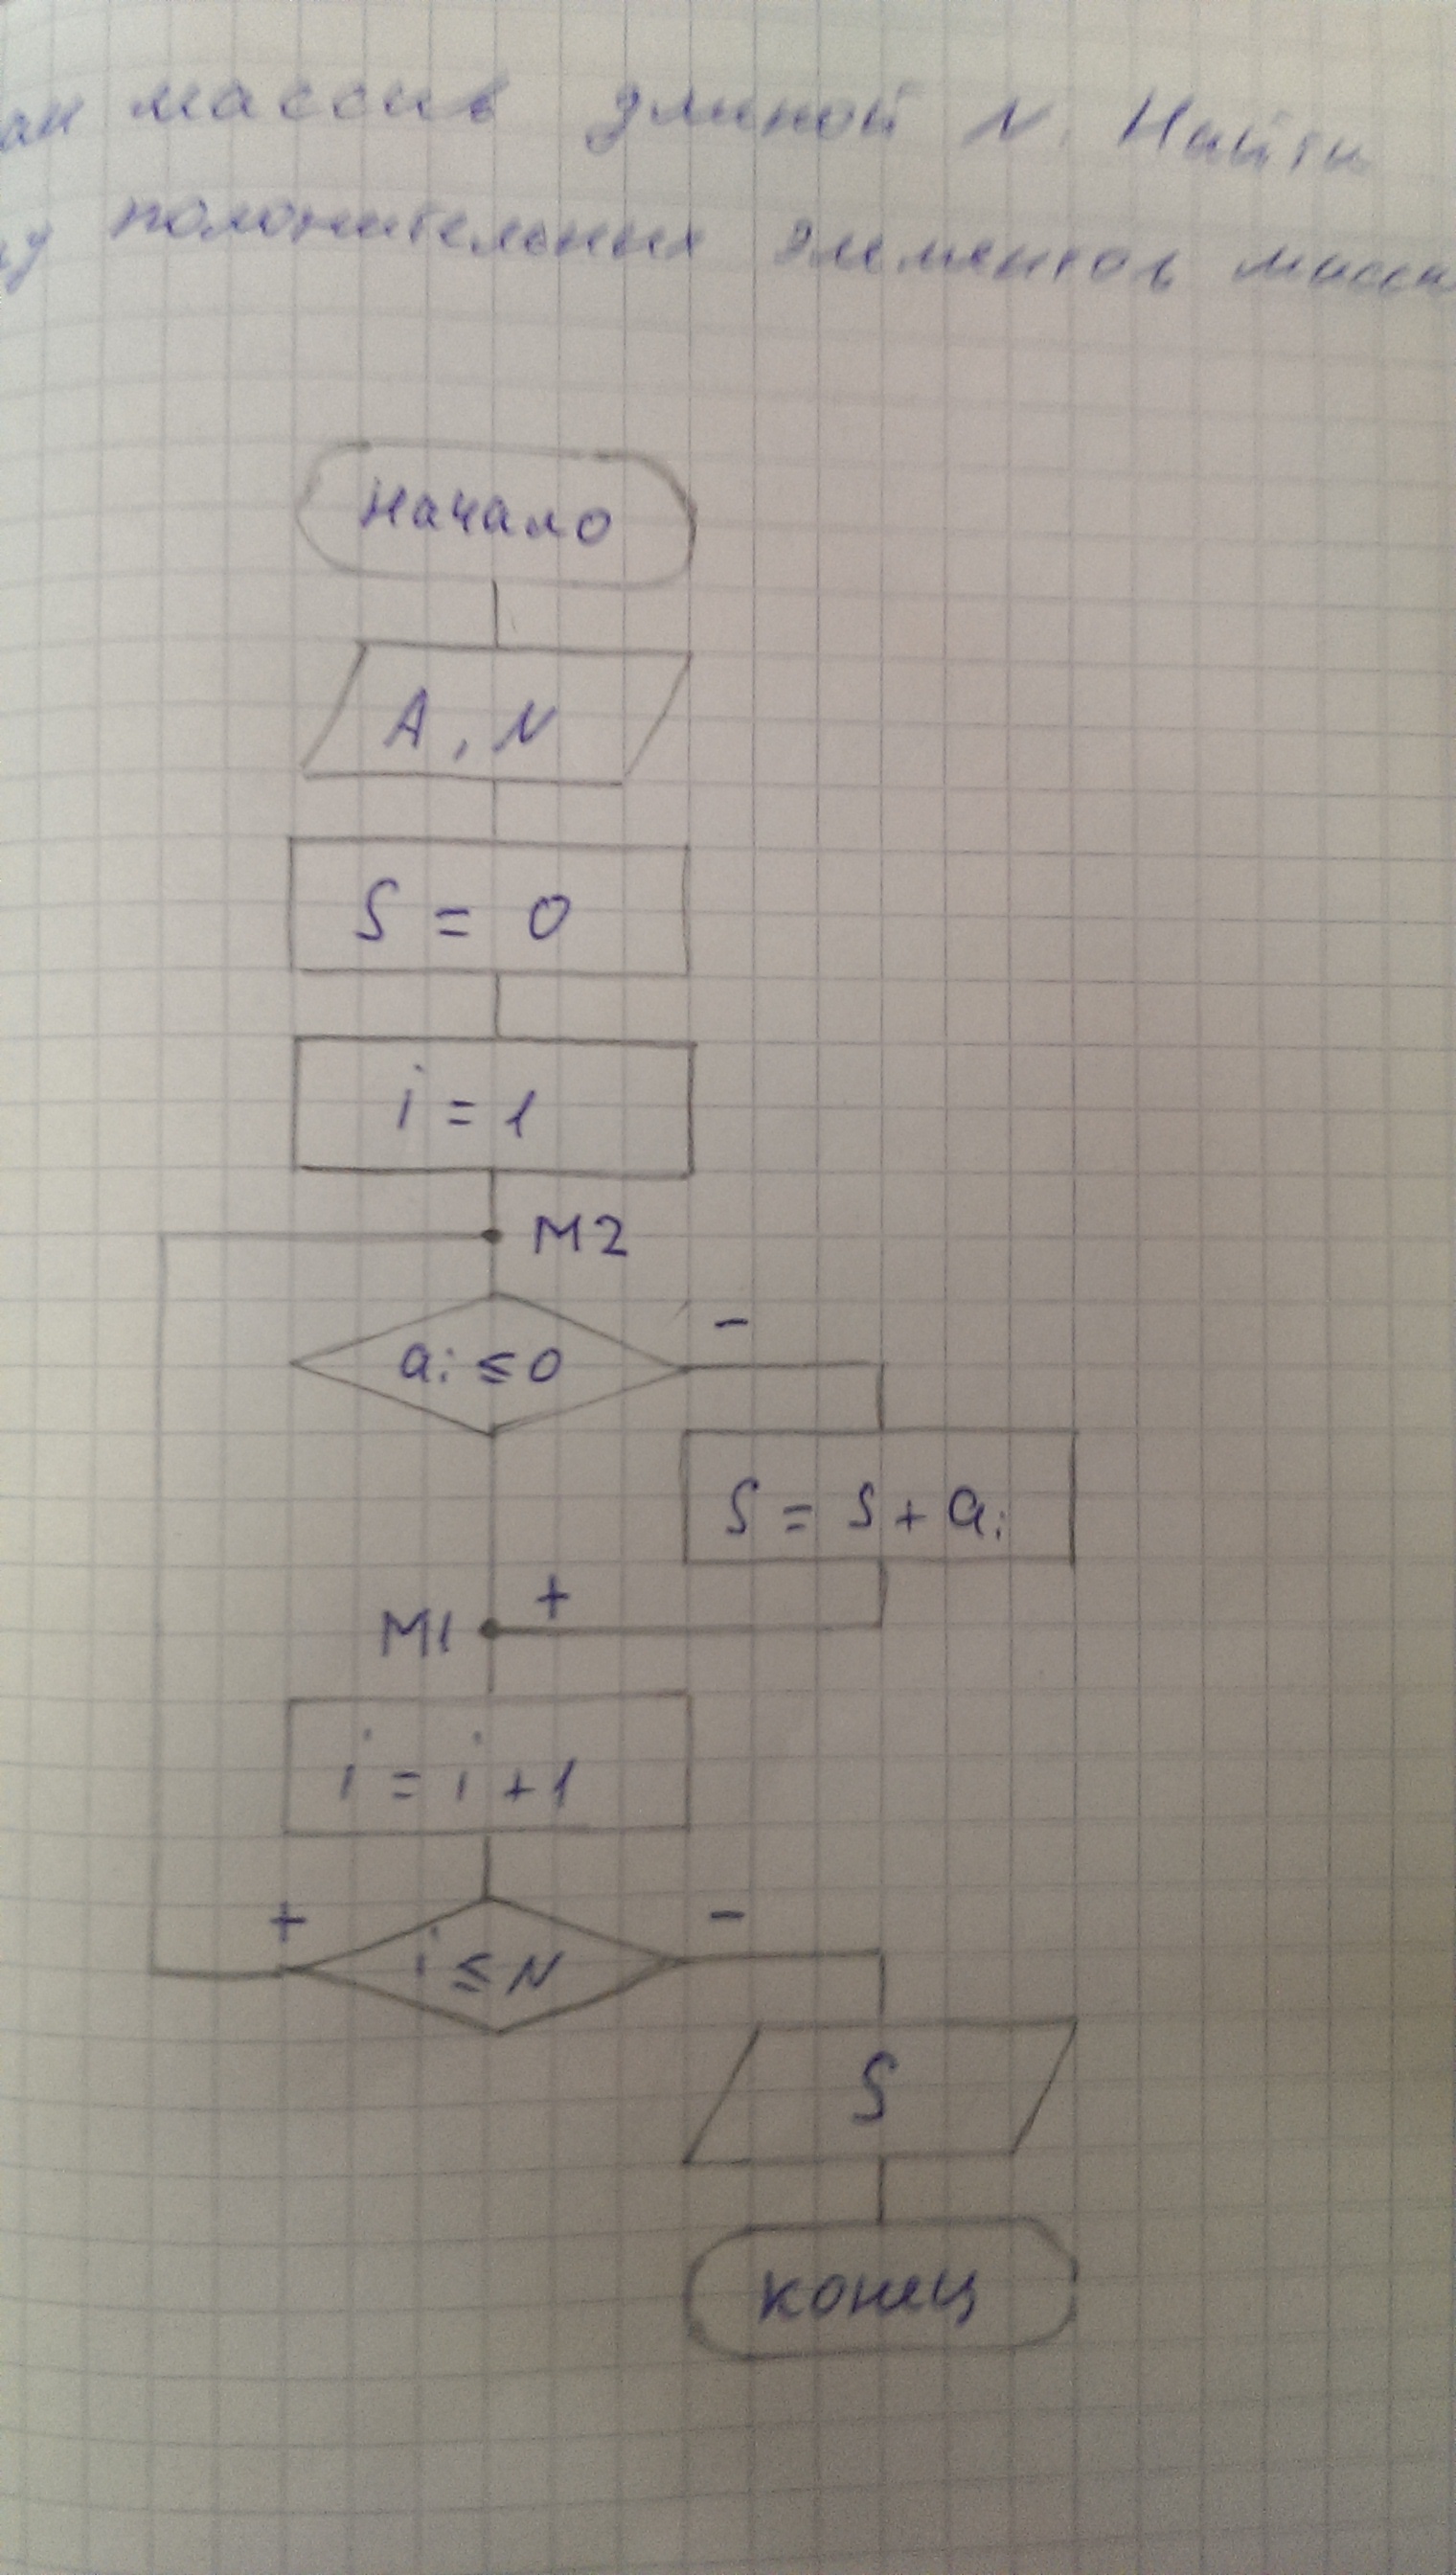 ан массив длиной N. Найти
у положительных элементов масси
Начало
A, N
S = 0
i = 1
M2
ai ≤ 0
-
S = S + ai
+
M1
i = i + 1
+
i ≤ N
-
S
конец